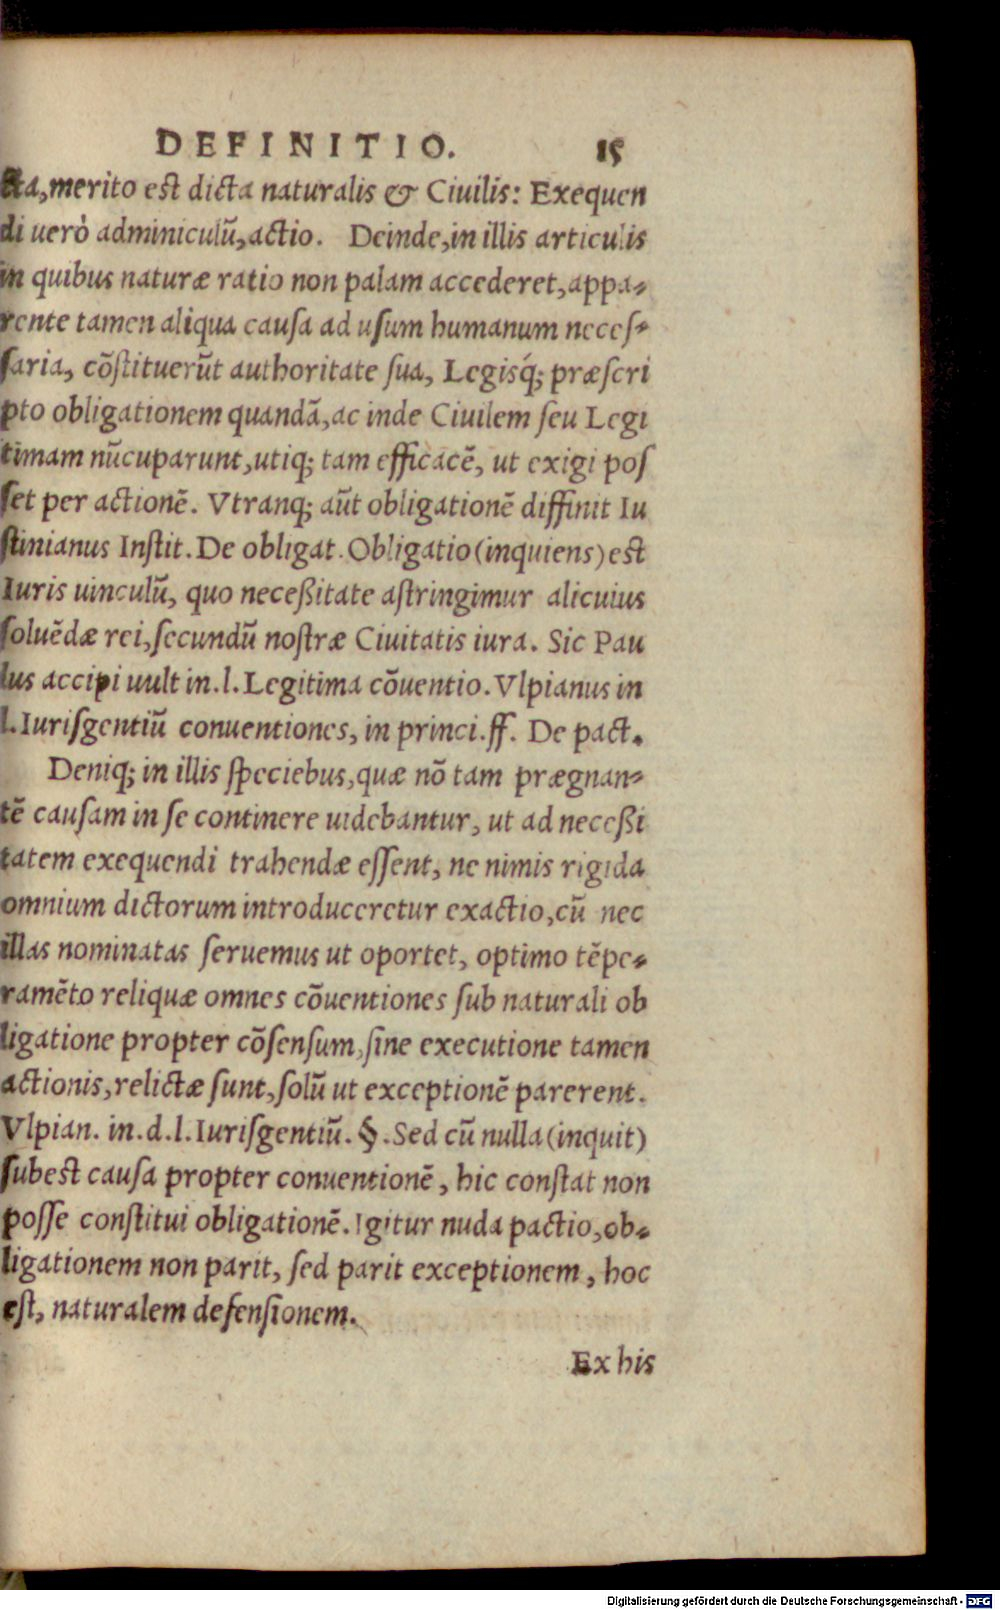 DEFINITIO. 15
cta, merito est dicta naturalis & Ciuilis: Exequen
di uerò adminiculũ, actio. Deinde, in illis articulis
in quibus naturæ ratio non palam accederet, appa-
rente tamen aliqua causa ad usum humanum neces-
saria, cõstituerũt authoritate sua, Legisq́; præscri
pto obligationem quandã, ac inde Ciuilem seu Legi
timam nũcuparunt, utiq; tam efficacẽ, ut exigi pos
set per actionẽ. Vtranq; aũt obligationẽ diffinit Iu
stinianus Instit. De obligat. Obligatio (inquiens) est
Iuris uinculũ, quo neceßitate astringimur alicuius
soluẽdæ rei, secundũ nostræ Ciuitatis iura. Sic Pau
lus accipi uult in.l. Legitima cõuentio. Vlpianus in
l. Iurisgentiũ conuentiones, in princi. ff. De pact.
Deniq; in illis speciebus, quæ nõ tam prægnan-
tẽ causam in se continere uidebantur, ut ad neceßi
tatem exequendi trahendæ essent, ne nimis rigida
omnium dictorum introduceretur exactio, cũ nec
illas nominatas seruemus ut oportet, optimo tẽpe-
ramẽto reliquæ omnes cõuentiones sub naturali ob
ligatione propter cõsensum, sine executione tamen
actionis, relictæ sunt, solũ ut exceptionẽ parerent.
Vlpian. in.d.l. Iurisgentiũ. §. Sed cũ nulla (inquit)
subest causa propter conuentionẽ, hic constat non
posse constitui obligationẽ. Igitur nuda pactio, ob-
ligationem non parit, sed parit exceptionem, hoc
est, naturalem defensionem.
Ex his
Digitalisierung gefördert durch die Deutsche Forschungsgemeinschaft - DFG